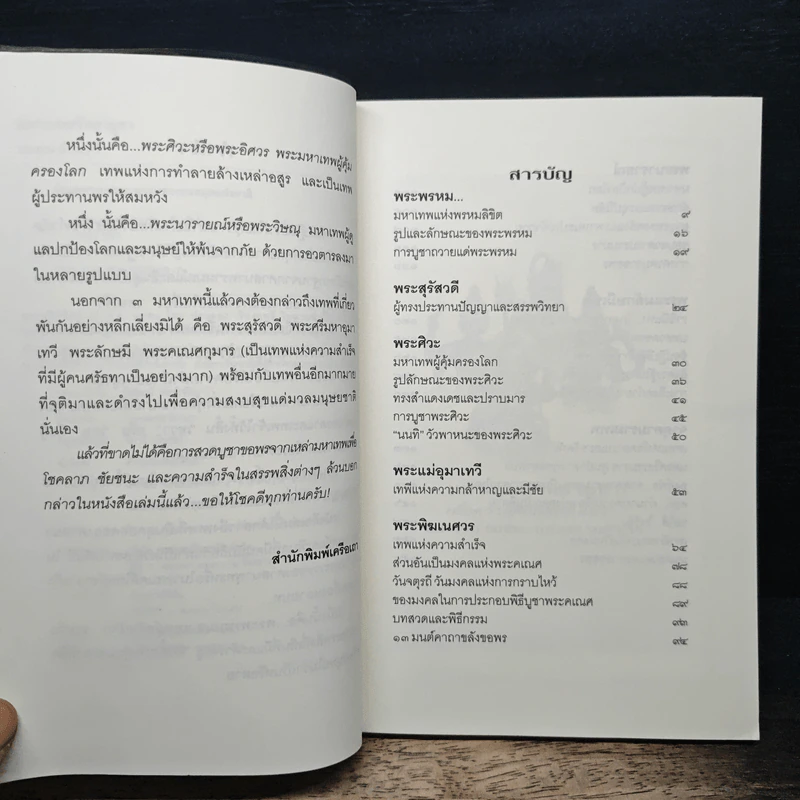 หนึ่งนั้นคือ...พระศิวะหรือพระอิศวร พระมหาเทพผู้คุ้ม
ครองโลก เทพแห่งการทำลายล้างเหล่าอสูร และเป็นเทพ
ผู้ประทานพรให้สมหวัง
หนึ่ง นั้นคือ...พระนารายณ์หรือพระวิษณุ มหาเทพผู้ดู
แลปกป้องโลกและมนุษย์ให้พ้นจากภัย ด้วยการอวตารลงมา
ในหลายรูปแบบ
นอกจาก ๓ มหาเทพนี้แล้วคงต้องกล่าวถึงเทพที่เกี่ยว
พันกันอย่างหลีกเลี่ยงมิได้ คือ พระสุรัสวดี พระศรีมหาอุมา
เทวี พระลักษมี พระคเณศกุมาร (เป็นเทพแห่งความสำเร็จ
ที่มีผู้คนศรัทธาเป็นอย่างมาก) พร้อมกับเทพอื่นอีกมากมาย
ที่จุติมาและดำรงไปเพื่อความสงบสุขแด่มวลมนุษยชาติ
นั่นเอง
แล้วที่ขาดไม่ได้คือการสวดบูชาขอพรจากเหล่ามหาเทพเพื่อ
โชคลาภ ชัยชนะ และความสำเร็จในสรรพสิ่งต่างๆ ล้วนบอก
กล่าวในหนังสือเล่มนี้แล้ว...ขอให้โชคดีทุกท่านครับ!
สำนักพิมพ์เครือเถา
สารบัญ
พระพรหม...
มหาเทพแห่งพรหมลิขิต ๙
รูปและลักษณะของพระพรหม ๑๖
การบูชาถวายแด่พระพรหม ๑๙
พระสุรัสวดี
ผู้ทรงประทานปัญญาและสรรพวิทยา ๒๔
พระศิวะ
มหาเทพผู้คุ้มครองโลก ๓๐
รูปลักษณะของพระศิวะ ๓๖
ทรงสำแดงเดชและปราบมาร ๔๑
การบูชาพระศิวะ ๔๕
“นนทิ” วัวพาหนะของพระศิวะ ๕๐
พระแม่อุมาเทวี
เทพีแห่งความกล้าหาญและมีชัย ๕๓
พระพิฆเนศวร
เทพแห่งความสำเร็จ ๖๔
ส่วนอันเป็นมงคลแห่งพระคเณศ ๗๘
วันจตุรถี วันมงคลแห่งการกราบไหว้ ๘๘
ของมงคลในการประกอบพิธีบูชาพระคเณศ ๘๙
บทสวดและพิธีกรรม ๙๓
๑๓ มนต์คาถาขลังขอพร ๙๔